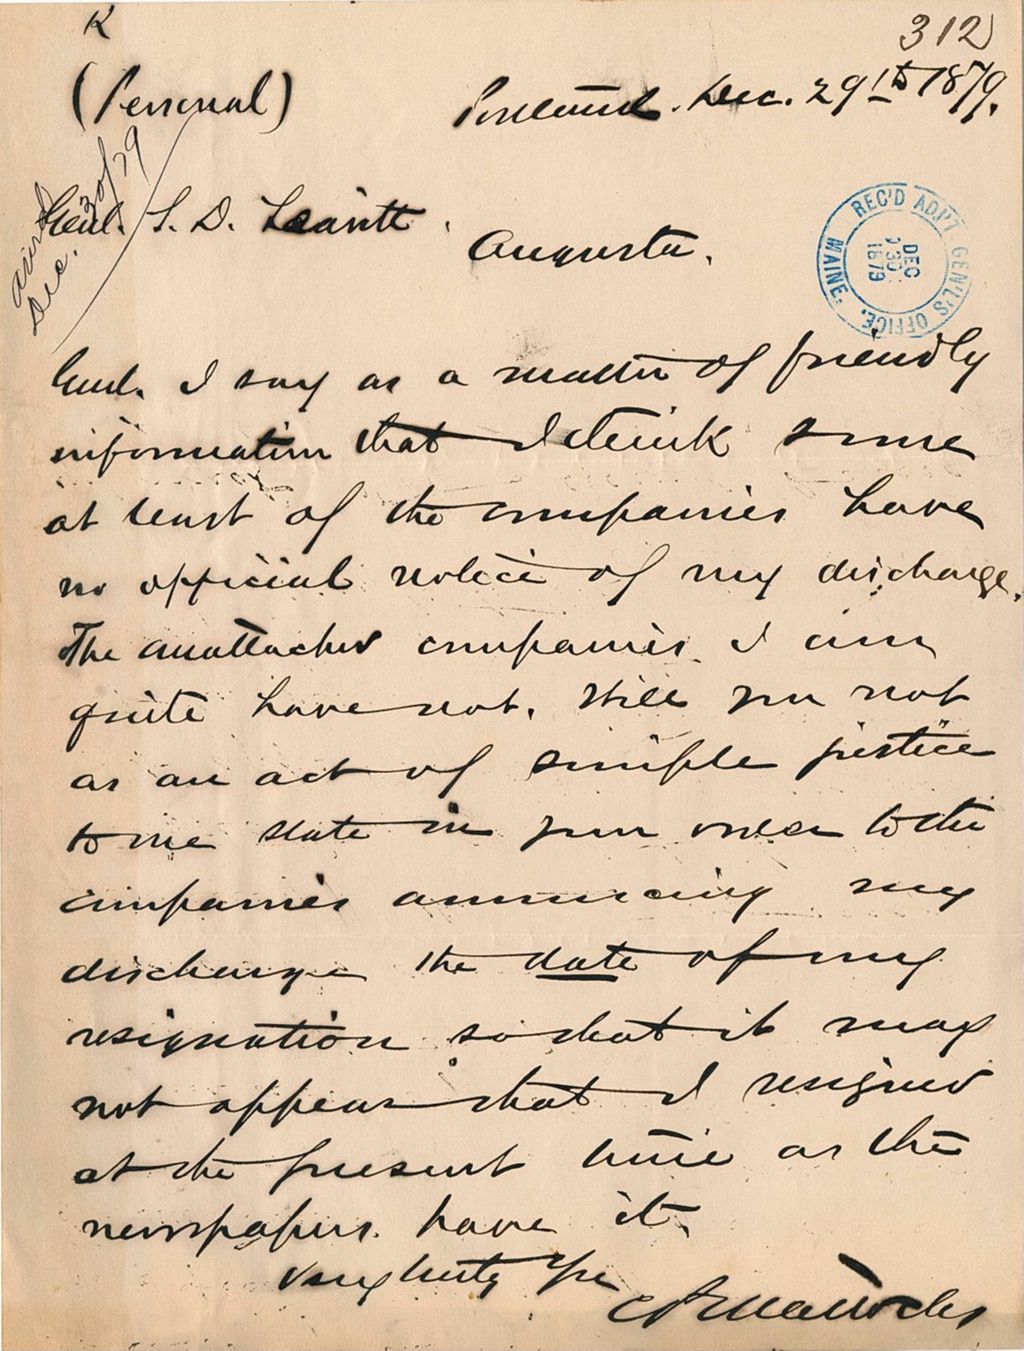 K
312
(Personal)
Portland. Dec. 29th 1879.
Dec. 30/79
Genl. S. D. Leavitt.
Augusta.
REC'D ADJ'T GEN'L'S OFFICE. MAINE.
DEC
30
1879
Genl. I say as a matter of friendly
information that I think some
at least of the companies have
no official notice of my discharge.
The unattached companies I am
quite have not. Will you not
as an act of simple justice
to me state in your order to the
companies announcing my
discharge the date of my
resignation so that it may
not appear that I resigned
at the present time as the
newspapers have it.
Very truly Yrs
C P Mattocks